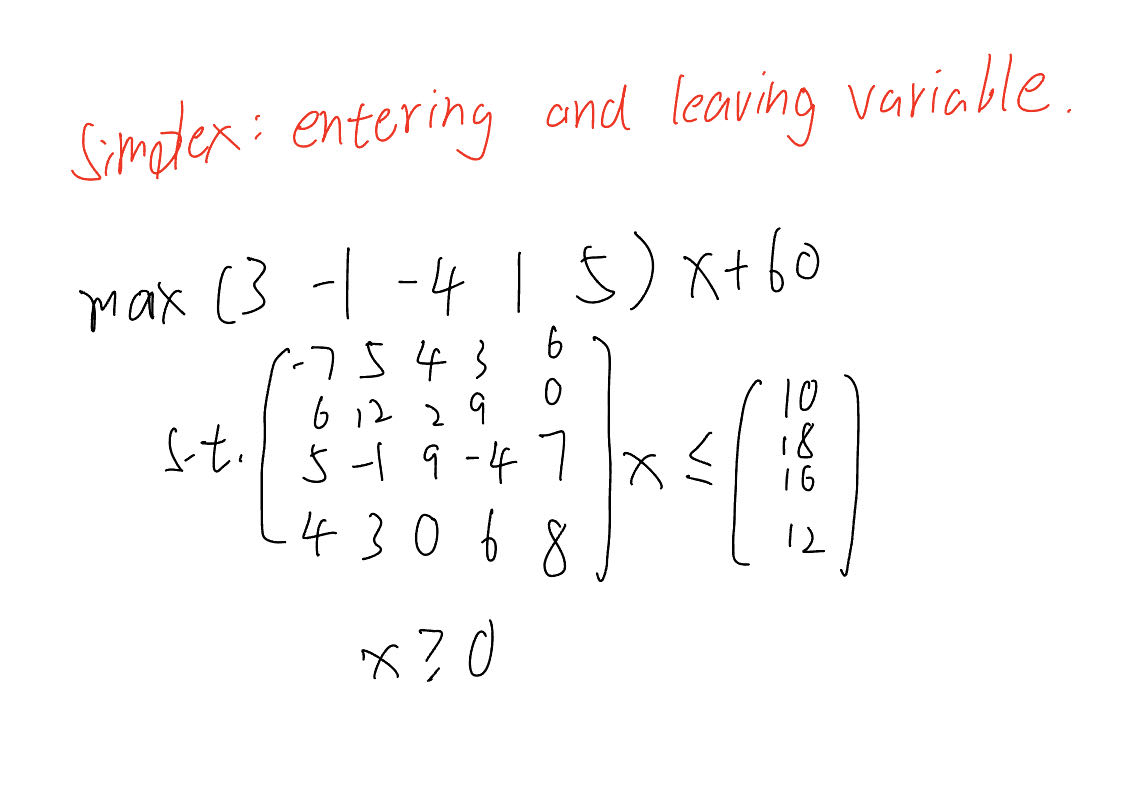 Simplex: entering and leaving variable.
max (3 -1 -4 1 5) x + 60
s.t. (-7 5 4 3 6
6 12 2 9 0
5 -1 9 -4 7
4 3 0 6 8) x ≤ (10
18
16
12)
x ≥ 0